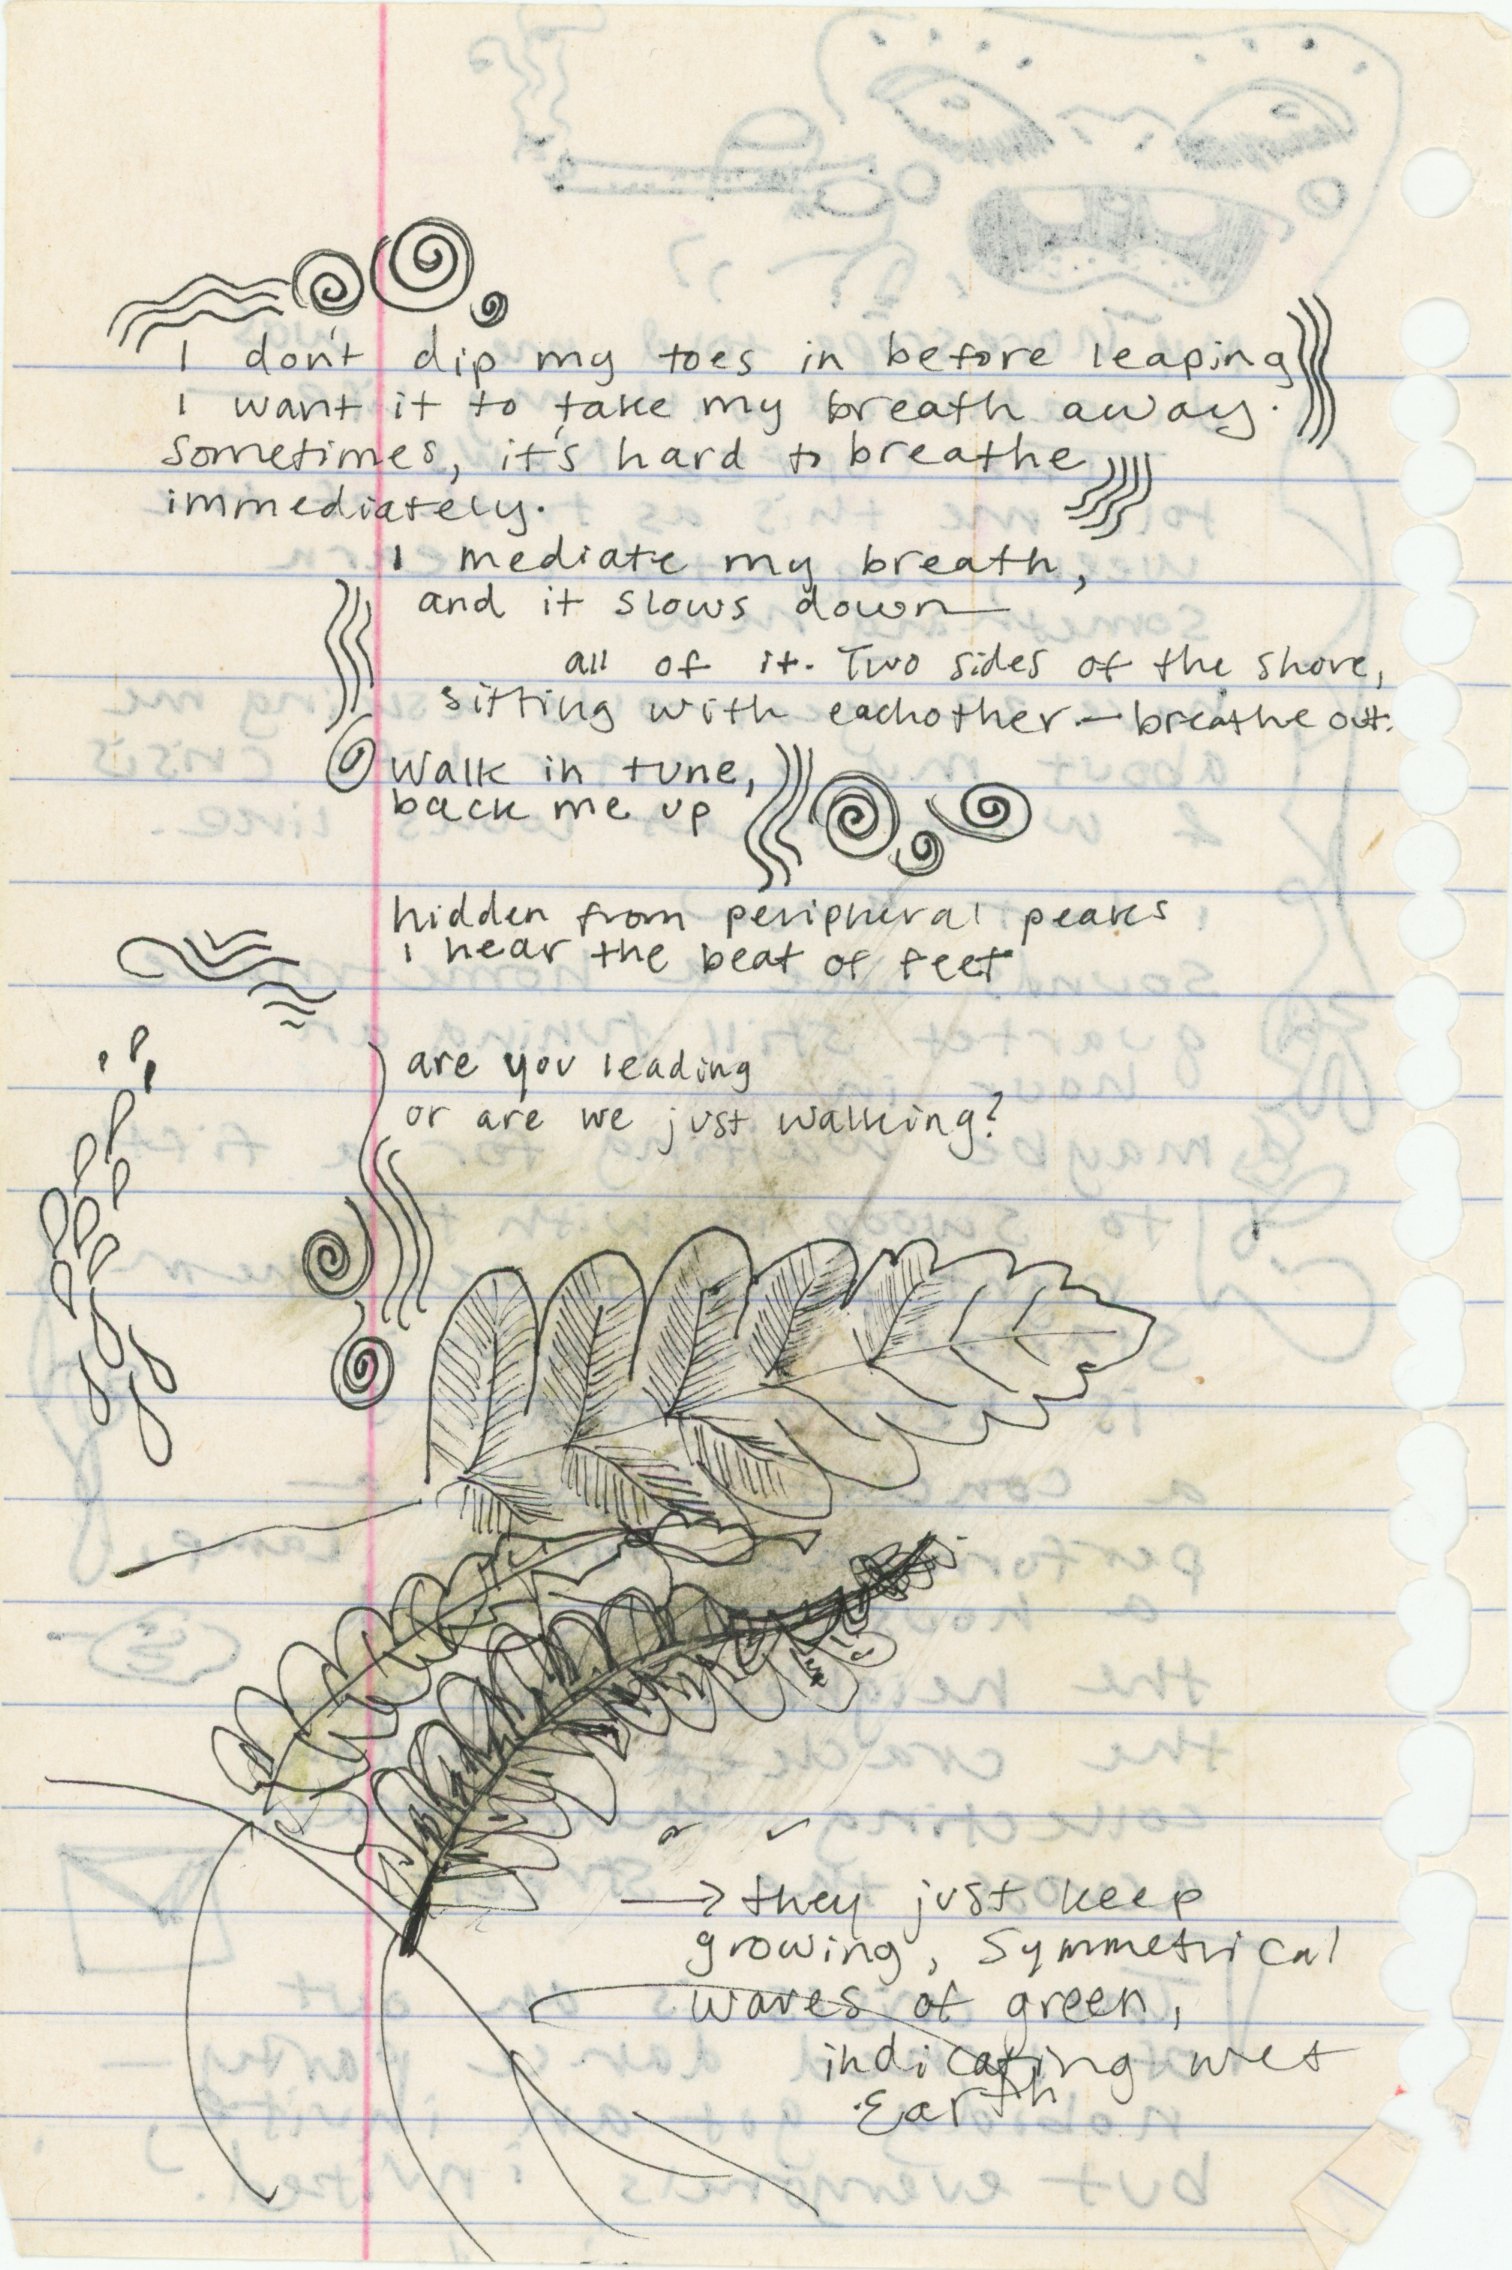 I don't dip my toes in before leaping
I want it to take my breath away.
Sometimes, it's hard to breathe
immediately.
I mediate my breath,
and it slows down—
all of it. Two sides of the shore,
sitting with eachother — breathe out.
Walk in tune,
back me up
hidden from peripheral peaks
I hear the beat of feet
are you leading
or are we just walking?
→ they just keep
growing, symmetrical
waves of green,
indicating wet
Earth